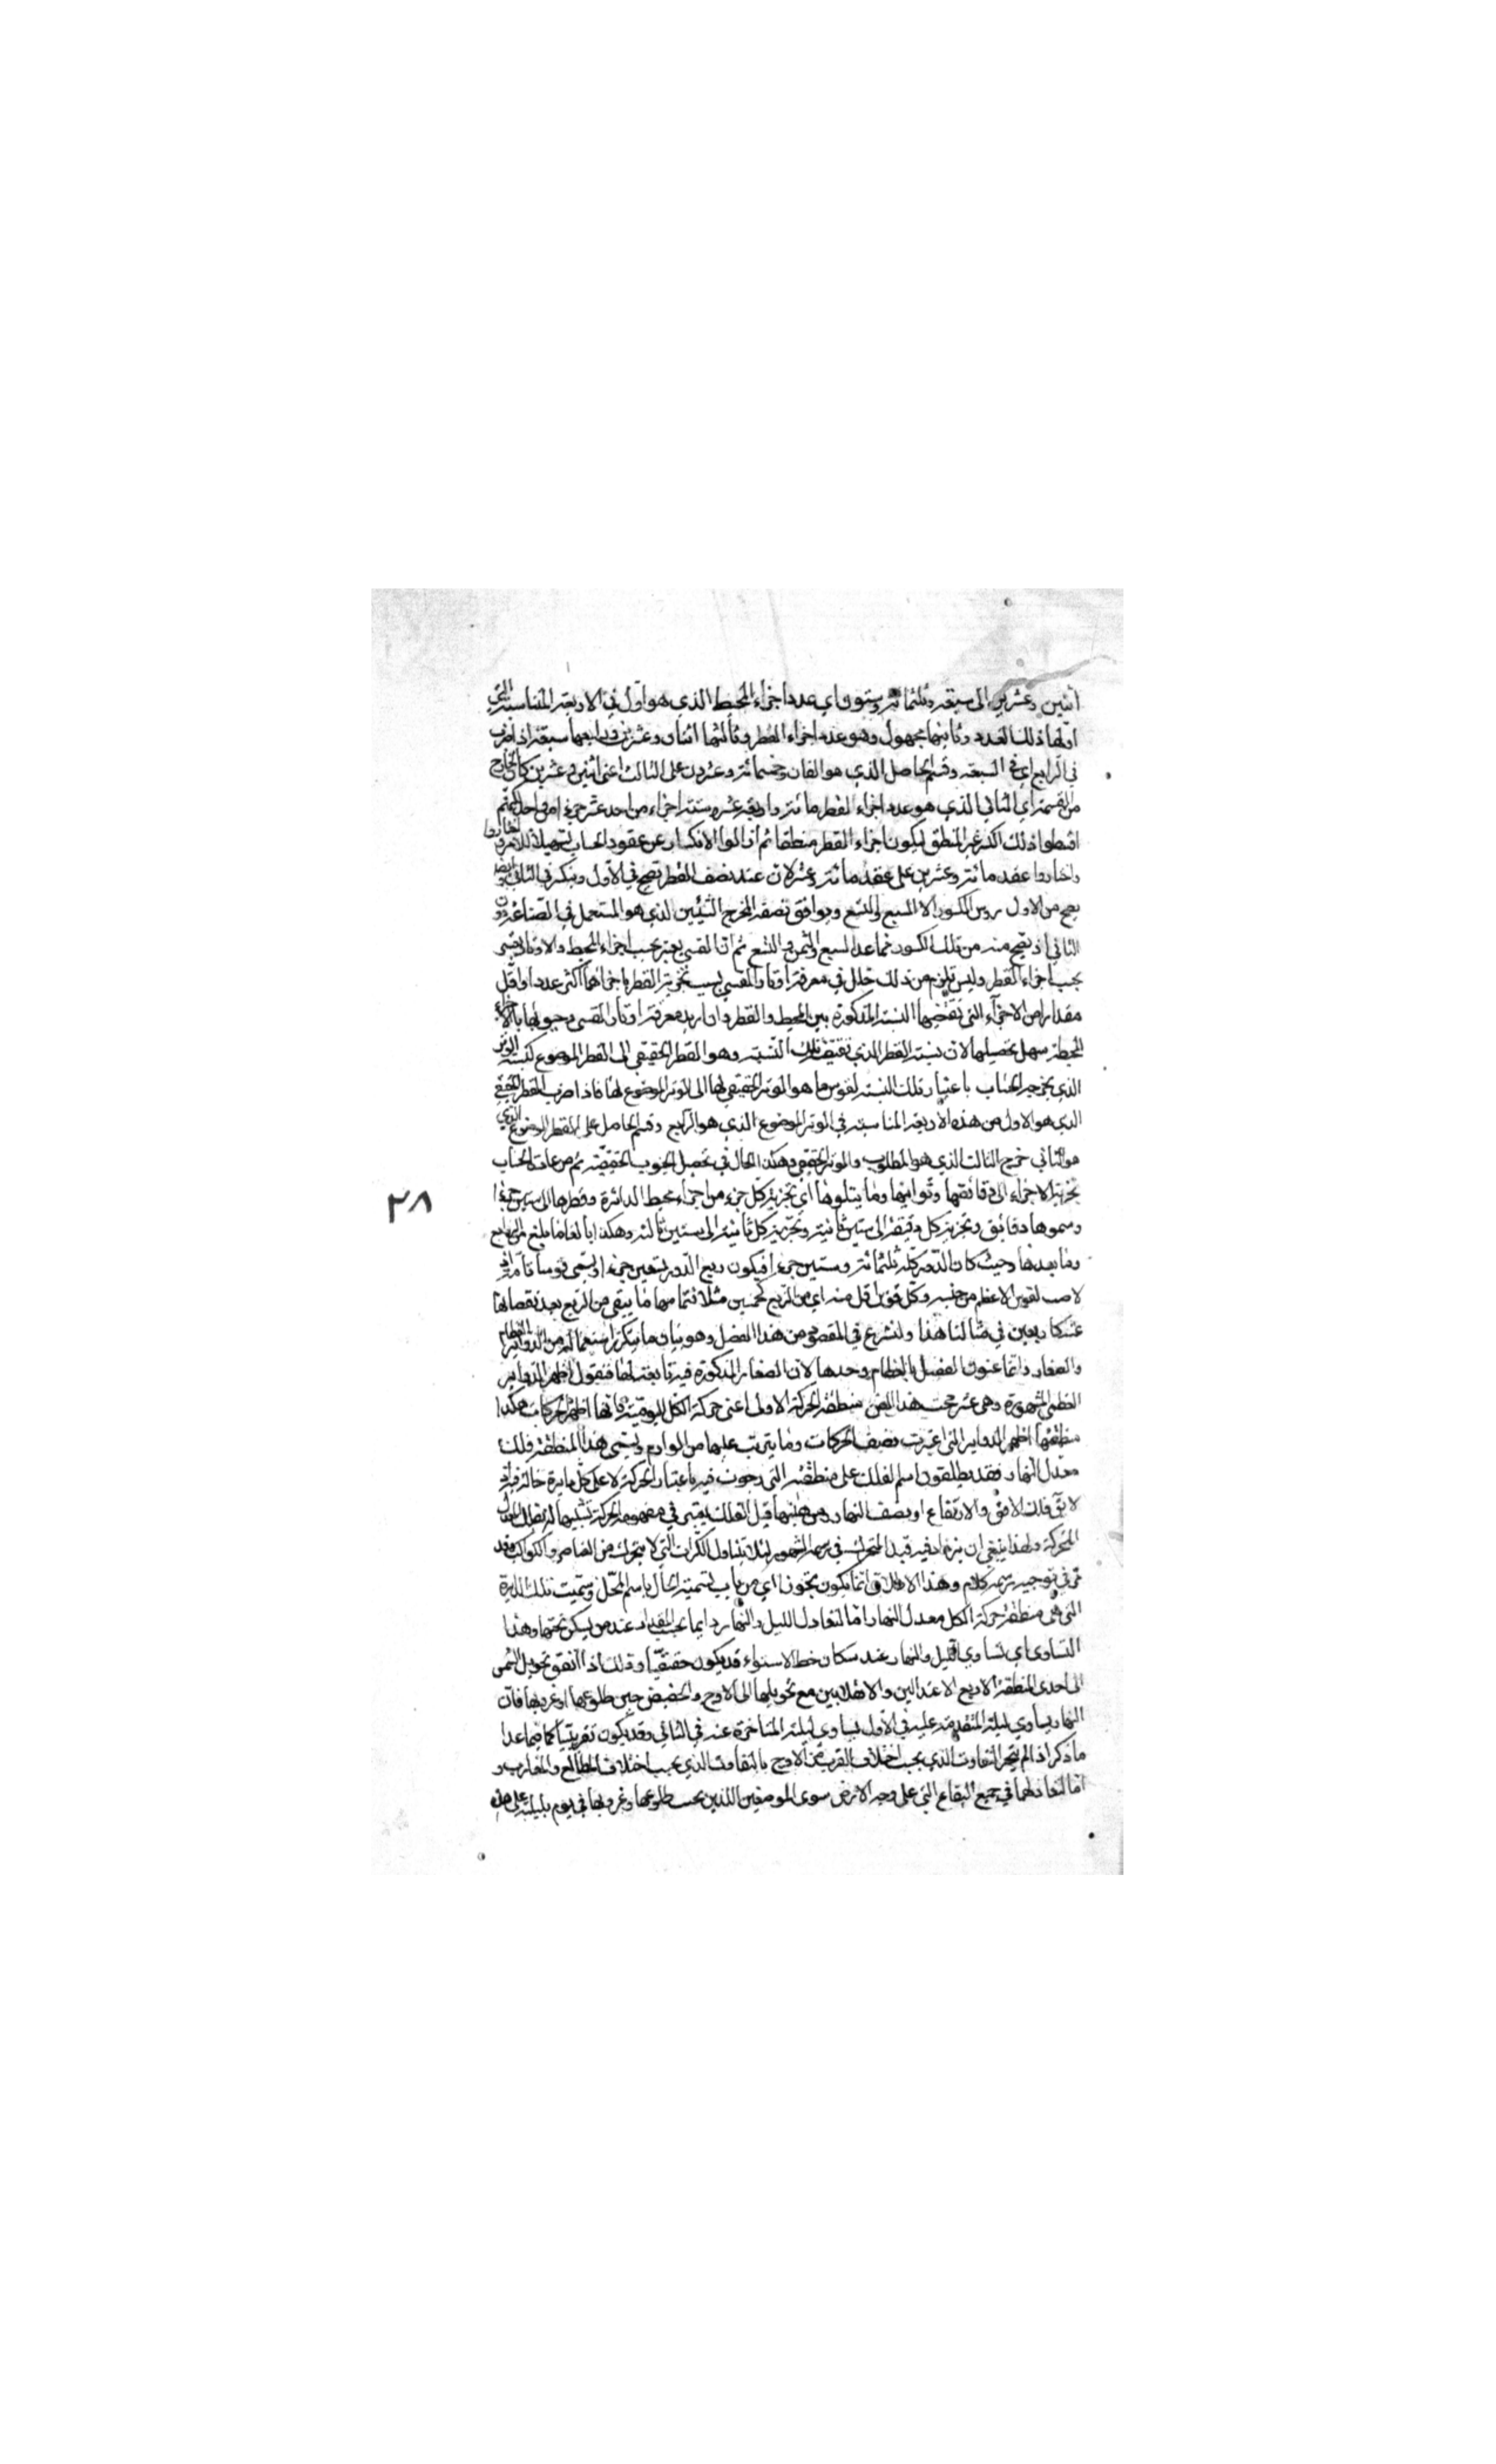 اثنين وعشرين الى سبعة وثلثمائة وستون اي عدد اجزاء المحيط الذي هو اول في الاربعة المتناسبة التي
اولها ذلك العدد وثانيها مجهول وهو عدد اجزاء القطر وثالثها اثنان وعشرون ورابعها سبعة اذا ضرب
في الرابع اي في السبعة وقسم الحاصل الذي هو الفان وخمسمائة وعشرون على الثالث اعني اثنين وعشرين كان الخارج
من القسمة اي الثاني الذي هو عدد اجزاء القطر مائة واربعة عشر وستة اجزاء من احد عشر جزءا من واحد ثم
اسقطوا ذلك الكسر غير المنطق ليكون اجزاء القطر منطقا ثم ازالوا الانكسار عن عقود الحساب تسهيلا للامر
واختاروا عقد مائة وعشرين على عقد مائة وعشر لان عند نصف القطر يصح في الاول وينكسر في الثاني
يصح من الاول الكسور الا السبع والتسع ويوافق نصفه المخرج الستيني الذي هو المستعمل في الصناعة دون
الثاني اذ يصح منه من تلك الكسور ما عدا السبع والثمن و التسع ثم ان القسي يعتبر بحسب اجزاء المحيط والاوتار
بحسب اجزاء القطر وليس يلزم من ذلك خلل في معرفة اوتار القسي بسبب تجزية القطر باجزاء هي اكثر عددا واقل
مقدارا من الاجزاء التي تقتضيها النسبة المذكورة بين المحيط والقطر وان اريد معرفة اوتار القسي وجيوبها بالاجزاء
المحيطية سهل تحصيلها لان نسبة القطر الذي تقتضيه تلك النسبة وهو القطر الحقيقي الى القطر الموضوع كنسبة الوتر
الذي يخرجه الحساب باعتبار تلك النسبة لقوس ما هو الوتر الحقيقي لها الى الوتر الموضوع لها فاذا ضرب القطر الحقيقي
الذي هو الاول من هذه الاربعة المتناسبة في الوتر الموضوع الذي هو الرابع وقسم الحاصل على القطر الموضوع الذي
هو الثاني خرج الثالث الذي هو المطلوب والوتر الحقيقي وهكذا الحال في تحصيل الجيوب الحقيقية ثم من عادة الحساب
تجزية الاجزاء الى دقائقها وثوانيها وما يتلوها اي تجزية كل جزء من اجزاء محيط الدائرة وقطرها الى ستين جزءا
وسموها دقائق وتجزية كل دقيقة الى ستين ثانية وتجزية كل ثانية الى ستين ثالثة وهكذا بالغا ما بلغ الى
وما بعدها وحيث كان الدور كله ثلثمائة وستين جزءا فيكون ربع الدور تسعين جزءا ويسمى قوسا تامة
لقوس الاعظم من جنسه وكل قوس اقل منه اي من الربع كخمسين مثلا فتمامها ما يبقى من الربع بعد نقصانها
عنه كاربعين في مثالنا هذا ولنشرع في المقصود من هذا الفصل وهو بيان ما يتكرر استعماله من الدواير العظام
والصغار وانما عنون الفصل بالعظام وحدها لان الصغار المذكورة فيه تابعة لها فنقول اظهر الدواير
العظمى المشهورة وهي عشر منطقة الحركة الاولى اعني حركة الكل اليومية فانها اظهر الحركات وهكذا
منطقتها اظهر الدواير التي اعتبرت الحركات وما يترتب عليها من اللوازم ويسمى هذه المنطقة فلك
معدل النهار فقد يطلقون اسم الفلك على منطقته التي وجدت فيه باعتبار الحركة لا على كل دايرة
فلك الافق والارتفاع او نصف النهار قيل الفلك يعتبر في مفهومه الحركة تشبيها له بفلكة المغزل
المتحركة ولهذا ينبغي ان يزاد فيه قيد المتحرك في رسمه المشهور لئلا يتناول الكرات التي لا يتحرك من العناصر والكواكب وقد
مر في توجيه رسمه كلام وهذا الاطلاق انما يكون تجوزا اي من باب تسمية الحال باسم المحل وسميت تلك الدايرة
التي هي منطقة حركة الكل معدل النهار اما لتعادل الليل والنهار دايما بحسب المقدار عند من يسكن تحتها وهذا
التساوي اي تساوي الليل والنهار عند سكان خط الاستواء قد يكون حقيقيا وذلك اذا اتفق تحويل الشمس
الى احدى النقطة الاربع الاعتدالين والانقلابين مع تحويلها الى الاوج والحضيض حين طلوعها او غروبها فان
النهار يساوي ليلته المتقدمة عليه في الاول ويساوي ليلته المتاخرة عنه في الثاني وقد يكون تقريبيا كما فيما عدا
ما ذكر اذا لم ينجبر التفاوت الذي بحسب اختلاف القرب من الاوج بالتفاوت الذي بحسب اختلاف المطالع والمغارب و
اما لتعادلهما في جميع البقاع التي على وجه الارض سوى الموضعين اللذين بحسب طلوعها وغروبها في يوم بليلته على
٢٨